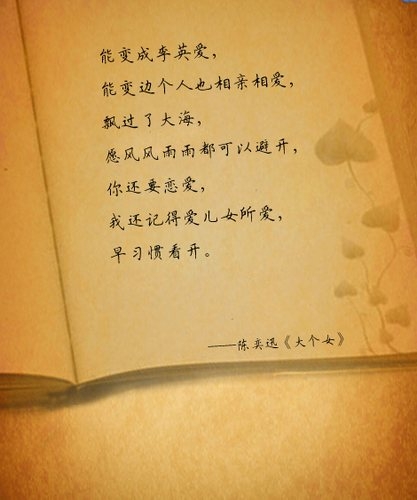 能变成李英爱，
能变边个人也相亲相爱，
飘过了大海，
愿风风雨雨都可以避开，
你还要恋爱，
我还记得爱儿女所爱，
早习惯看开。
——陈奕迅《大个女》